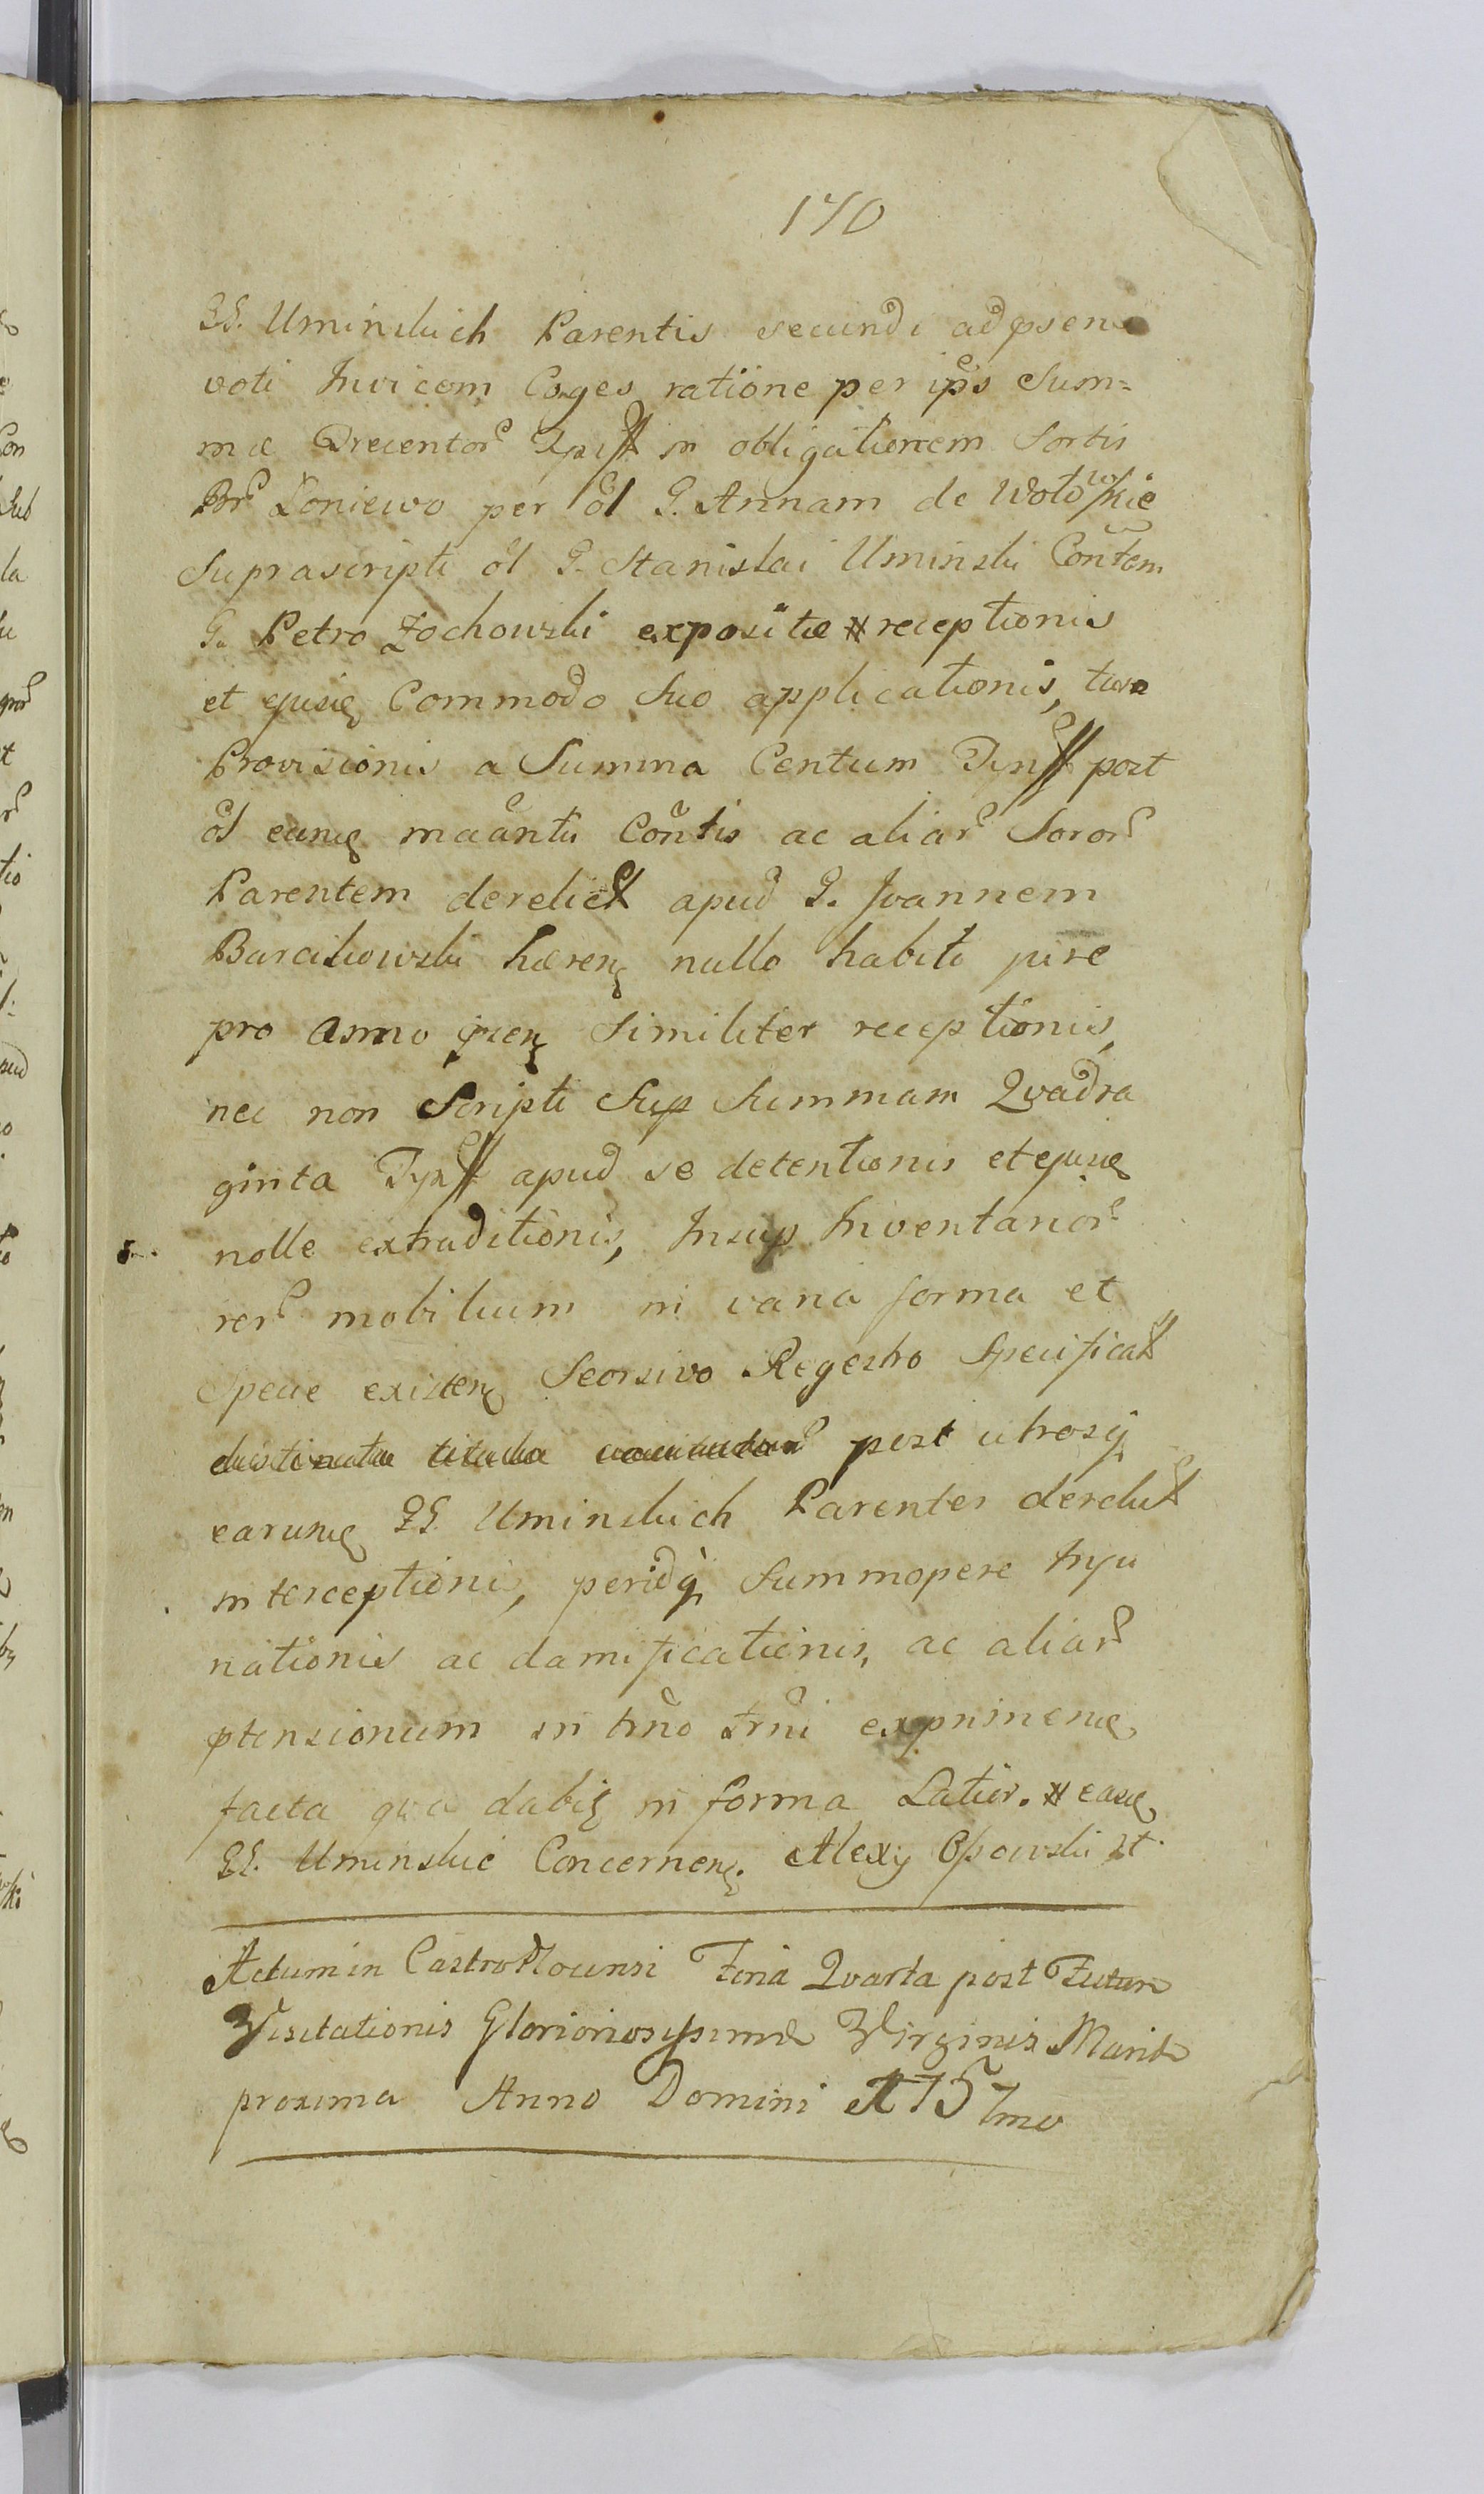 170
GG. Uminskich Parentis secundi ad psens
voti Invicem Cojges ratione per ipŝ Sum=
mæ Trecentor Tynff in obligationem Sortis
Bnr Zoniewo per ol G. Annam de Wołowskie
Suprascripti ol G. Stanislai Uminski Contem
G. Petro Zochowski expositæ # receptionis
et ejusq Commodo Suo applicationis, tum
Provisionis a Summa Centum Tynff post
ol eunq Contis ac aliar Soror
Parentem derelict apud G. Joannem
Barcikowski hæreñ nullo habito jure
pro anno similiter receptionis,
nec non Scripti Sup Summam Quadra
ginta Tynff apud se detentionis et ejusq
nolle extraditionis, Insup Inventarior
rer mobilium in varia forma et
Specie existen Seorsivo Regestro Specificat
post utrosq
earunq GG. Uminskich Parentes derelict
interceptionis, peridq Summopere Inju
nationis ac damificationis, ac aliar
ptensionum in trno trni exprimenq
facta qva dabit in forma Latior. # easq
GG. Uminskie Concernen. Alexy Opowski st
Actum in Castro Plocensi Feria Qvarta post Festum
Visitationis Gloriosissimæ Virginis Mariæ
proxima Anno Domini 1757mo